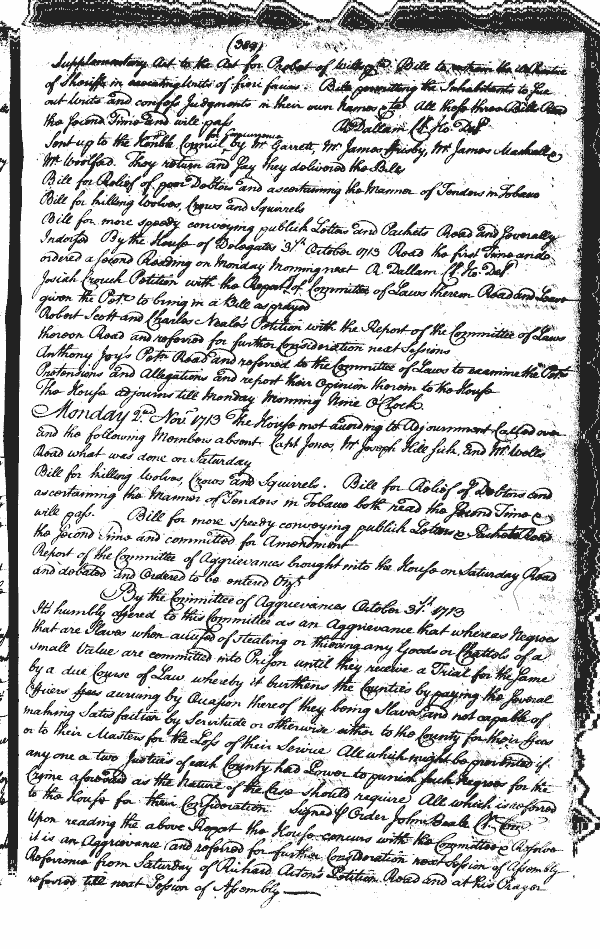 (382)
Supplementary Act to the Act for Probat of Wills &ca Bill to restrain the
of Sheriffs in executing Writs of fieri facias : Bill permitting the Inhabitants to Sue
out Writs and confess Judgments in their own names &ca All those three Bills Read
the Second Time and will pass R Dallam Cl. Ho. Delt
Sent up to the Honble Council for Concurrence by Mr Garrett, Mr James Frisby, Mr James Mackall &
Mr Woolford. They return and say they delivered the Bills
Bill for Relief of poor Debtors and ascertaining the Manner of Tenders in Tobacco
Bill for killing Wolves, Crows and Squirrels
Bill for more speedy conveying publick Letters and Packets Read and Severally
Indorsed By the House of Delegates 31st October 1713 Read the first Time and
ordered a second Reading on Monday Morning next R Dallam Cl. Ho. Delt
Josiah Crouch Petition with the Report of Committee of Laws thereon Read and Leave
given the Petr to bring in a Bill as prayed
Robert Scott and Charles Neale's Petition with the Report of the Committee of Laws
thereon Read and referred for further Consideration next Sessions
Anthony Joy's Petn Read and referred to the Committee of Laws to examine the Petrs
Pretensions and Allegations and report their Opinion thereon to the House
The House adjourns till Monday Morning Nine O'Clock
Monday 2nd Novr 1713 The House met according to Adjournment Called over
and the following Members absent Capt Jones, Mr Joseph Hill Sick, and Mr Wells
Read what was done on Saturday
Bill for killing Wolves, Crows and Squirrels. Bill for Relief of Debtors and
ascertaining the Manner of Tenders in Tobacco both read the Second Time &
will pass. Bill for more speedy conveying publick Letters & Packets Read
the Second Time and committed for Amendment
Report of the Committee of Aggrievances brought into the House on Saturday Read
and debated and Ordered to be entered Vizt
By the Committee of Aggrievances October 31st. 1713
It's humbly offered to this Committee as an Aggrievance that whereas Negroes
that are Slaves when accused of stealing or thieving any Goods or Chattels of a
small Value are committed into Prison until they receive a Trial for the same
by a due Course of Law whereby it burthens the Counties by paying the several
Officers Fees accruing by Occasion thereof they being Slaves and not capable of
making Satisfaction by Servitude or otherwise either to the County for their Fees
or to their Masters for the Loss of their Service All which might be prevented if
any one or two Justices of each County had Power to punish such Negroes for the
Crime aforesaid as the Nature of the Case should require All which is referred
to the House for their Consideration Signed p Order John Beale Cl. Com
Upon reading the above Report the House concurs with the Committee & Resolve
it is an Aggrievance and referred for further Consideration next Session of Assembly
Reference from Saturday of Richard Acton's Petition Read and at his Prayer
referred till next Session of Assembly